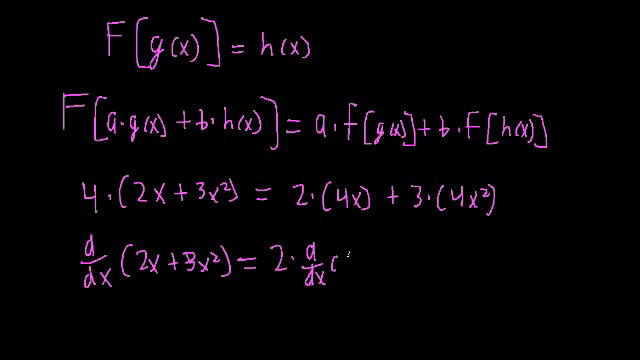 F[g(x)] = h(x)
F[a·g(x) + b·h(x)] = a·f[g(x)] + b·F[h(x)]
4·(2x + 3x²) = 2·(4x) + 3·(4x²)
d/dx (2x + 3x²) = 2·d/dx (